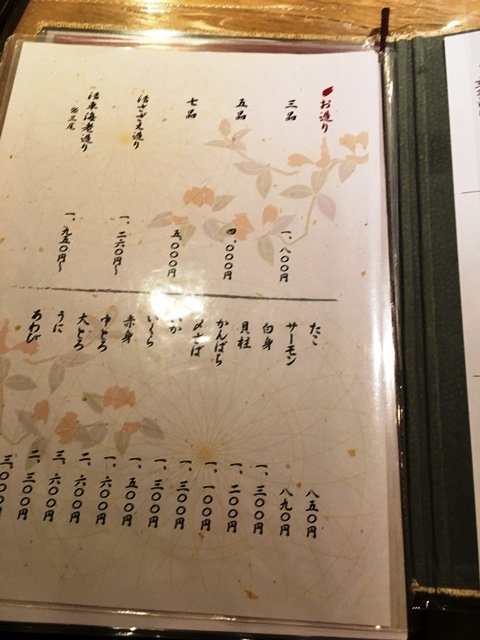 お造り
三品 一、八〇〇円
五品 四、〇〇〇円
七品 五、〇〇〇円
活さざえ造り 一、二六〇円〜
活車海老造り 一、九五〇円〜
三尾
たこ 八五〇円
サーモン 八九〇円
白身 一、三〇〇円
貝柱 一、二〇〇円
かんぱち 一、一〇〇円
〆さば 一、三〇〇円
いか 一、三〇〇円
いくら 一、五〇〇円
赤身 一、六〇〇円
中とろ 二、六〇〇円
大とろ 三、六〇〇円
うに 二、三〇〇円
あわび 三、〇〇〇円